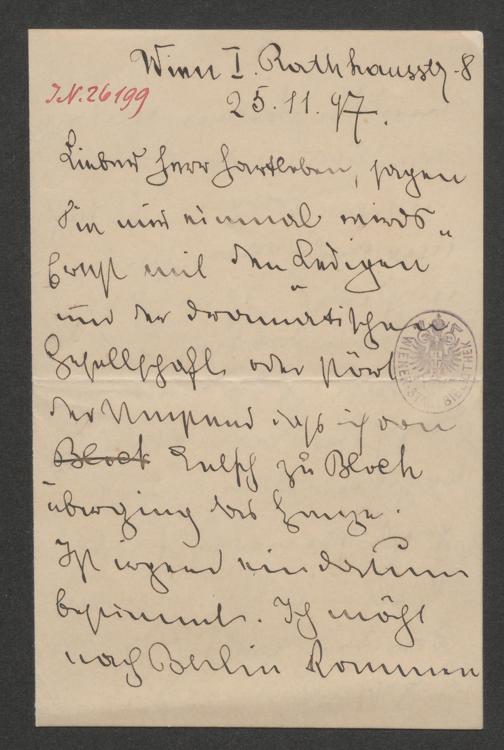 Wien I. Rathhausstr. 8
J.N. 26199
25. 11. 97.
Lieber Herr Hartleben, sagen
Sie mir einmal wirds
Ernst mit den „Ledigen“
und der dramatischen
Gesellschaft oder stört
der Umstand dass ich von
Bloch Entsch zu Bloch
überging das Ganze.
Ist irgend ein datum
bestimmt. Ich möcht
nach Berlin kommen
WIENER STADT BIBLIOTHEK